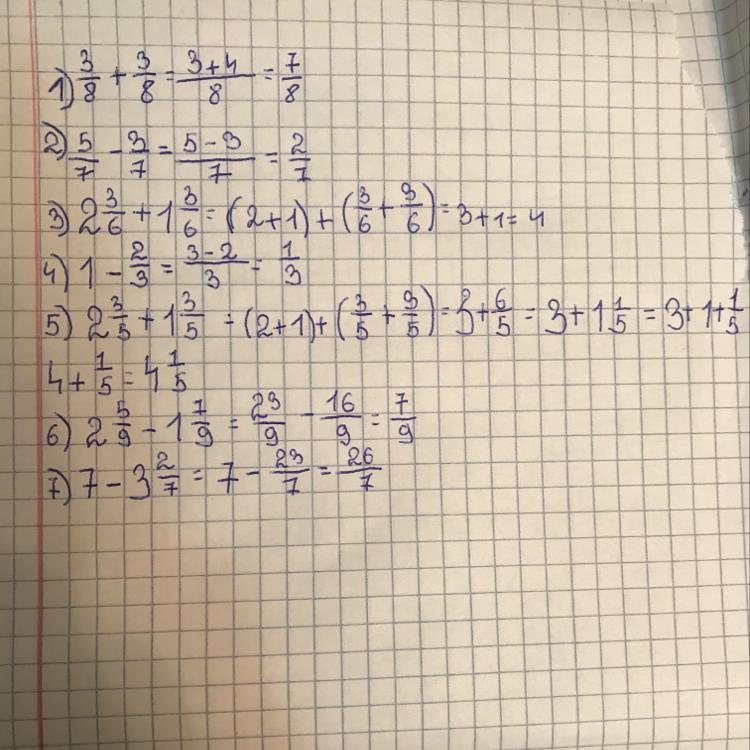 1) 3/8 + 3/8 = (3+4)/8 = 7/8
2) 5/7 - 3/7 = (5-3)/7 = 2/7
3) 2 3/6 + 1 3/6 = (2+1) + (3/6 + 3/6) = 3+1= 4
4) 1 - 2/3 = (3-2)/3 = 1/3
5) 2 3/5 + 1 3/5 = (2+1) + (3/5 + 3/5) = 3 + 6/5 = 3 + 1 1/5 = 3+1+ 1/5
4 + 1/5 = 4 1/5
6) 2 5/9 - 1 7/9 = 23/9 - 16/9 = 7/9
7) 7 - 3 2/7 = 7 - 23/7 = 26/7